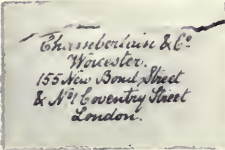 Chamberlain & Co.
Worcester.
155 New Bond Street
& No. 1 Coventry Street
London.